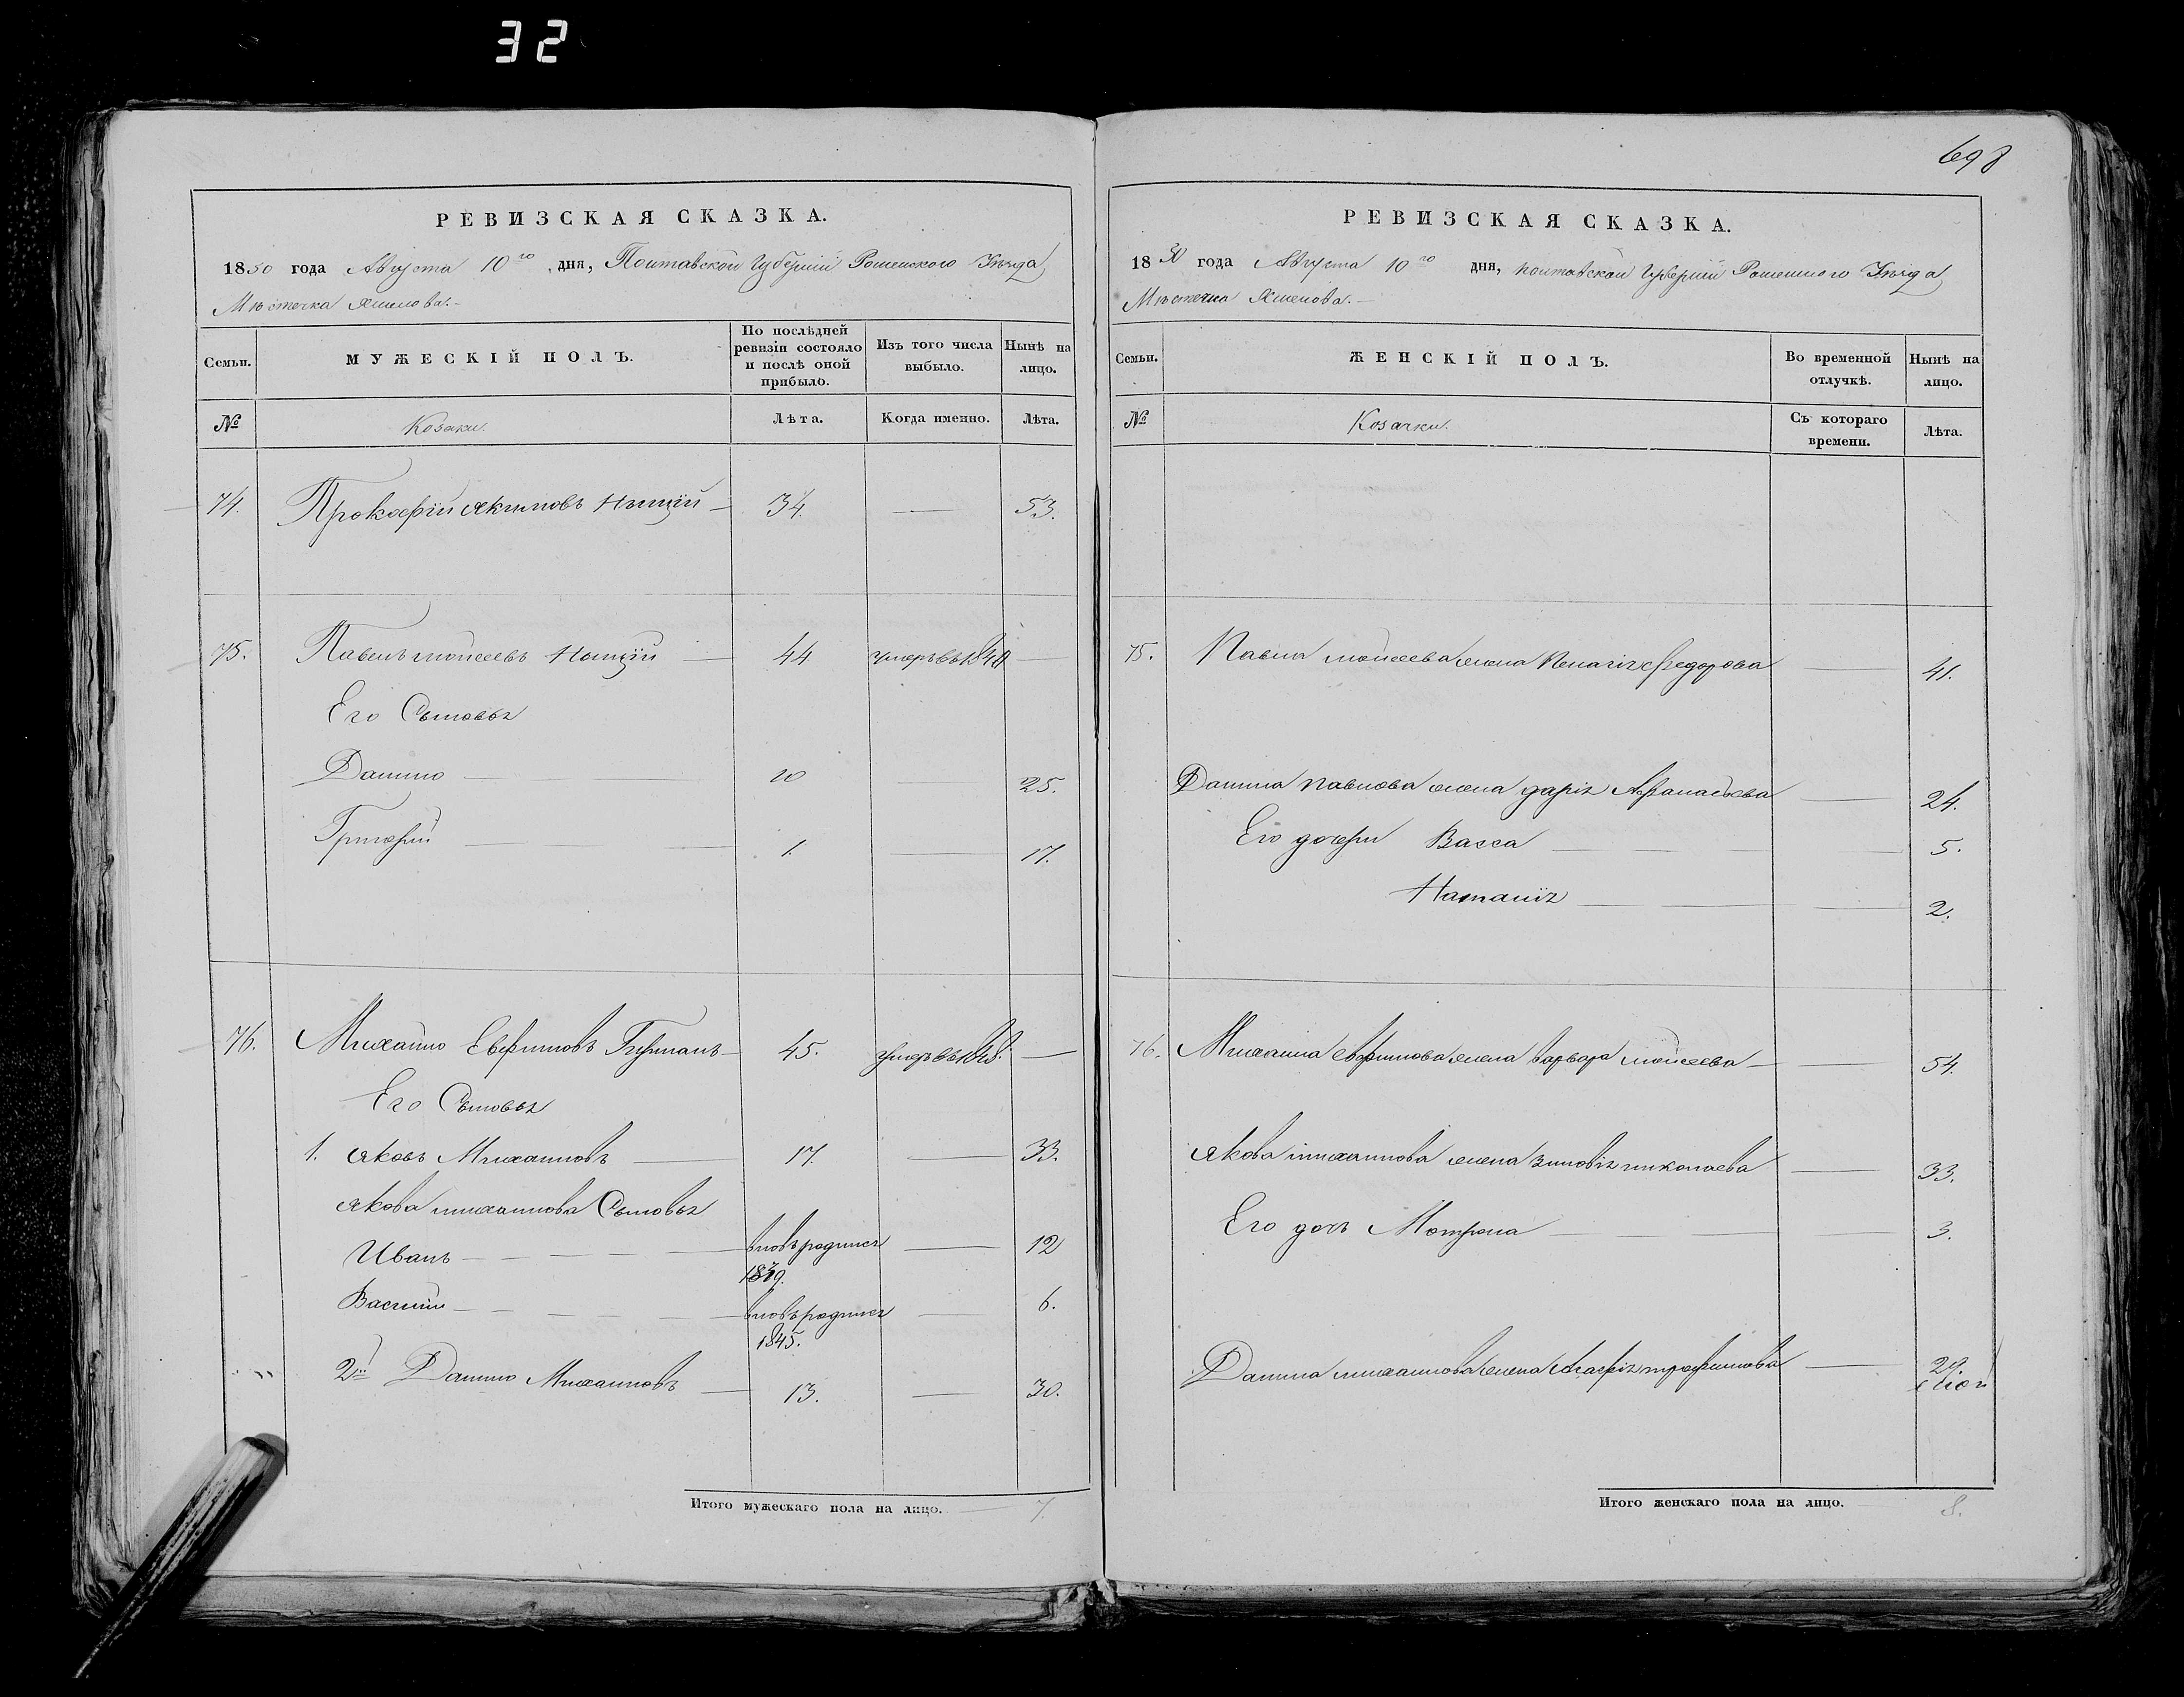 32
698
РЕВИЗСКАЯ СКАЗКА.
1850 года Августа 10го дня, Полтавской Губерніи Роменского Уѣзда
Мѣстечка Хмелова.
Семьи. МУЖЕСКІЙ ПОЛЪ. По послѣдней ревизіи состояло и послѣ оной прибыло. Изъ того числа выбыло. Нынѣ на лицо.
№ Козаки. Лѣта. Когда именно. Лѣта.
74. Прокофій Якимовъ 34. 53.
75. Павелъ Моисеевъ 44 умеръ въ 1840
Его Сыновья
Данило 20 25.
Григорій 1. 17.
76. Михайло Евфимовъ 45. умеръ въ 1848.
Его Сыновья
1. Яковъ Михайловъ 17. 33.
Якова Михайлова Сыновья
Иванъ вновь родился 12
1839.
Василій вновь родился 6.
1845.
2й Данило Михайловъ 13. 30.
Итого мужескаго пола на лицо. 7.
РЕВИЗСКАЯ СКАЗКА.
1850 года Августа 10го дня, Полтавской Губерніи Роменского Уѣзда
Мѣстечка Хмелова.
Семьи. ЖЕНСКІЙ ПОЛЪ. Во временной отлучкѣ. Нынѣ на лицо.
№ Козачки. Съ котораго времени. Лѣта.
75. Павла Моисеева жена Пелагія Федорова 41.
Данила Павлова жена Дарія Афанасьева 24.
Его дочери Васса 5.
Наталія 2.
76. Михаила Евфимова жена Варвара Моисеева 54.
Якова Михайлова жена Зиновія Николаева 33.
Его дочь Мотрона 3.
Данила Михайлова жена Агафія Трофимова 29.
Итого женскаго пола на лицо. 8.